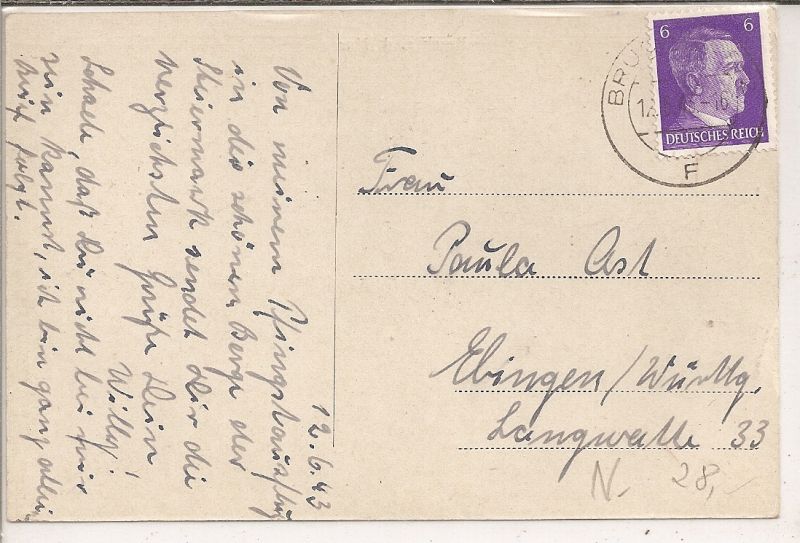 12.6.43
Von meinem Pfingstausflug
in die schönen Berge der
Steiermark sendet Dir die
herzlichsten Grüße Dein
Willy!
Schade, daß Du nicht bei mir
sein kannst, ich bin ganz allein
6 6
DEUTSCHES REICH
BRU
F
Frau
Paula Ast
Ebingen/Württg.
Langwatte 33
N. 28,-